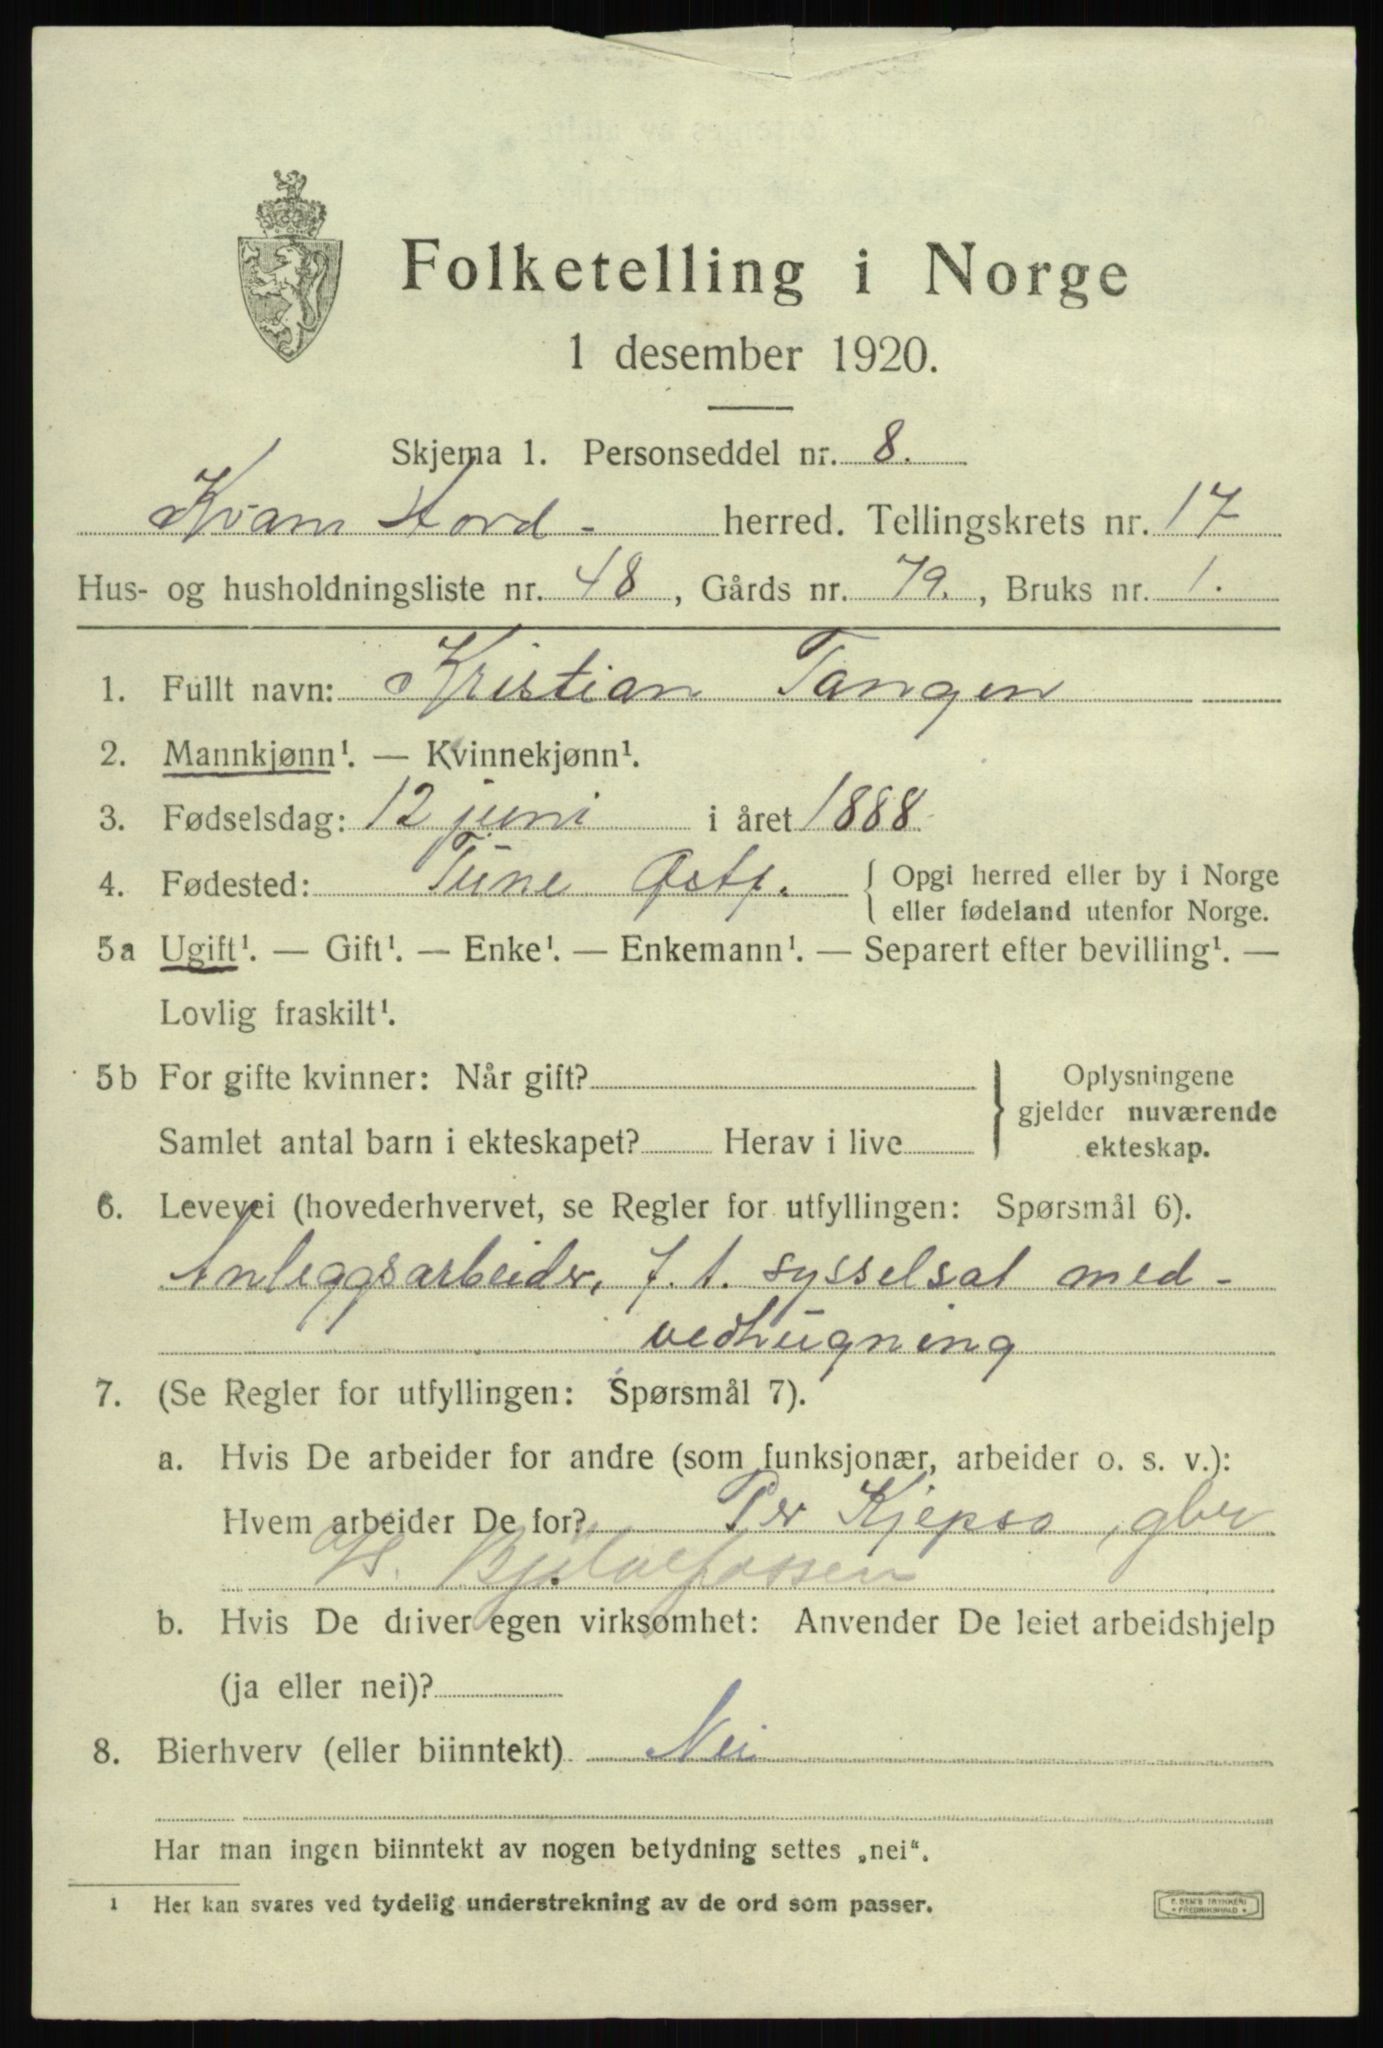 Folketelling i Norge
1 desember 1920.
Skjema 1. Personseddel nr. 8.
Kvam Hord - herred. Tellingskrets nr. 17
Hus- og husholdningsliste nr. 48, Gårds nr. 79., Bruks nr. 1.
1. Fullt navn: Kristian Tangen
2. Mannkjønn¹. — Kvinnekjønn¹.
3. Fødselsdag: 12 juni i året 1888.
4. Fødested: Tune Østf. { Opgi herred eller by i Norge
eller fødeland utenfor Norge.
5a Ugift¹. — Gift¹. — Enke¹. — Enkemann¹. — Separert efter bevilling¹. —
Lovlig fraskilt¹.
5b For gifte kvinner: Når gift? } Oplysningene
gjelder nuværende
Samlet antal barn i ekteskapet? Herav i live
ekteskap.
6. Levevei (hovederhvervet, se Regler for utfyllingen: Spørsmål 6).
Anleggsarbeider, f. t. sysselsat med -
vedhugning
7. (Se Regler for utfyllingen: Spørsmål 7).
a. Hvis De arbeider for andre (som funksjonær, arbeider o. s. v.):
Hvem arbeider De for? Per Kjepso, gbr
Bjølvefossen
b. Hvis De driver egen virksomhet: Anvender De leiet arbeidshjelp
(ja eller nei)?
8. Bierhverv (eller biinntekt) Nei
Har man ingen biinntekt av nogen betydning settes „nei“.
1 Her kan svares ved tydelig understrekning av de ord som passer.